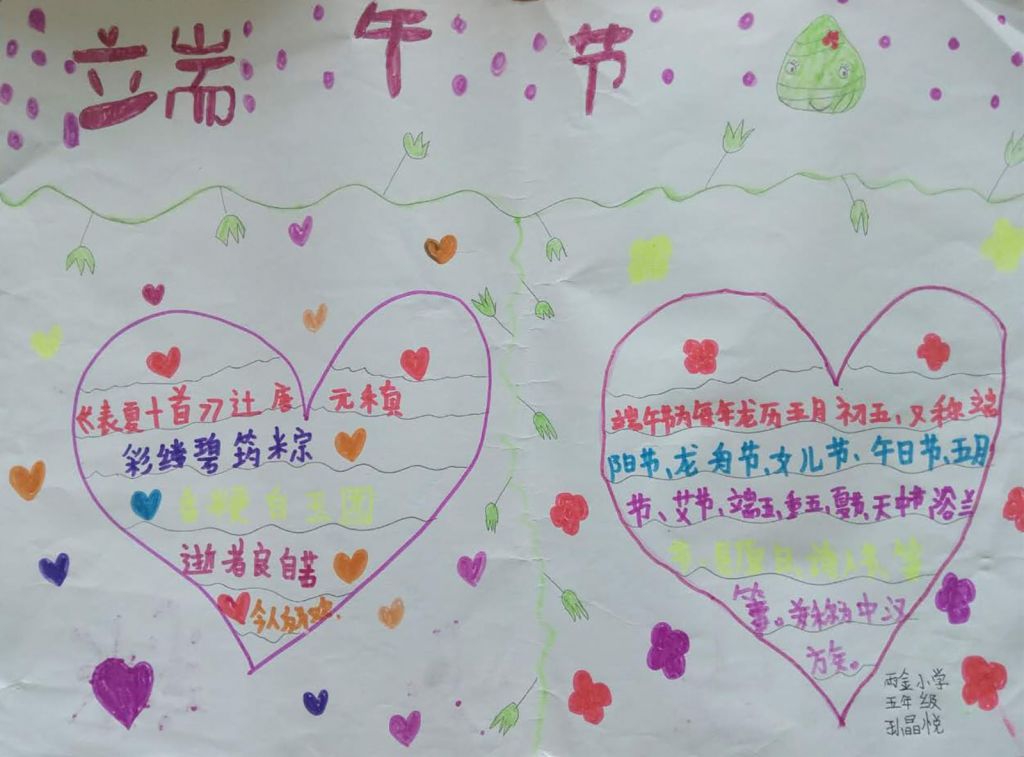 端午节
《表夏十首》 唐 元稹
彩缕碧筠粽
香粳白玉团
逝者良自苦
今人
端午节为每年农历五月初五，又称端
阳节、龙舟节、女儿节、午日节、五月
节、艾节、端五、重五、夏节、天中节、浴兰
节、诗人节、等
等。
族。
两金小学
五年级
孙晶悦